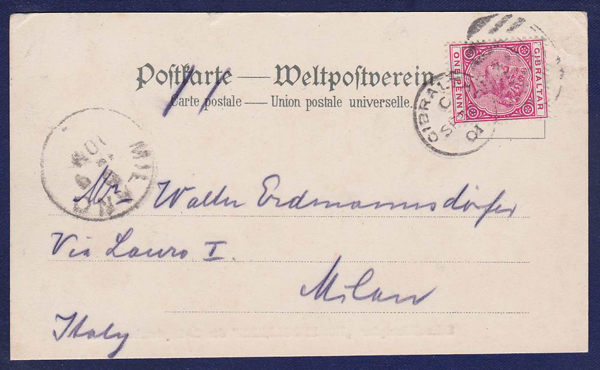 Postkarte — Weltpostverein
Carte postale — Union postale universelle.
GIBRALTAR
ONE PENNY
GIBRAL
C
01
MILANO
Mr Walter Erdmannsdörfer
Via Lauro I.
Milan
Italy